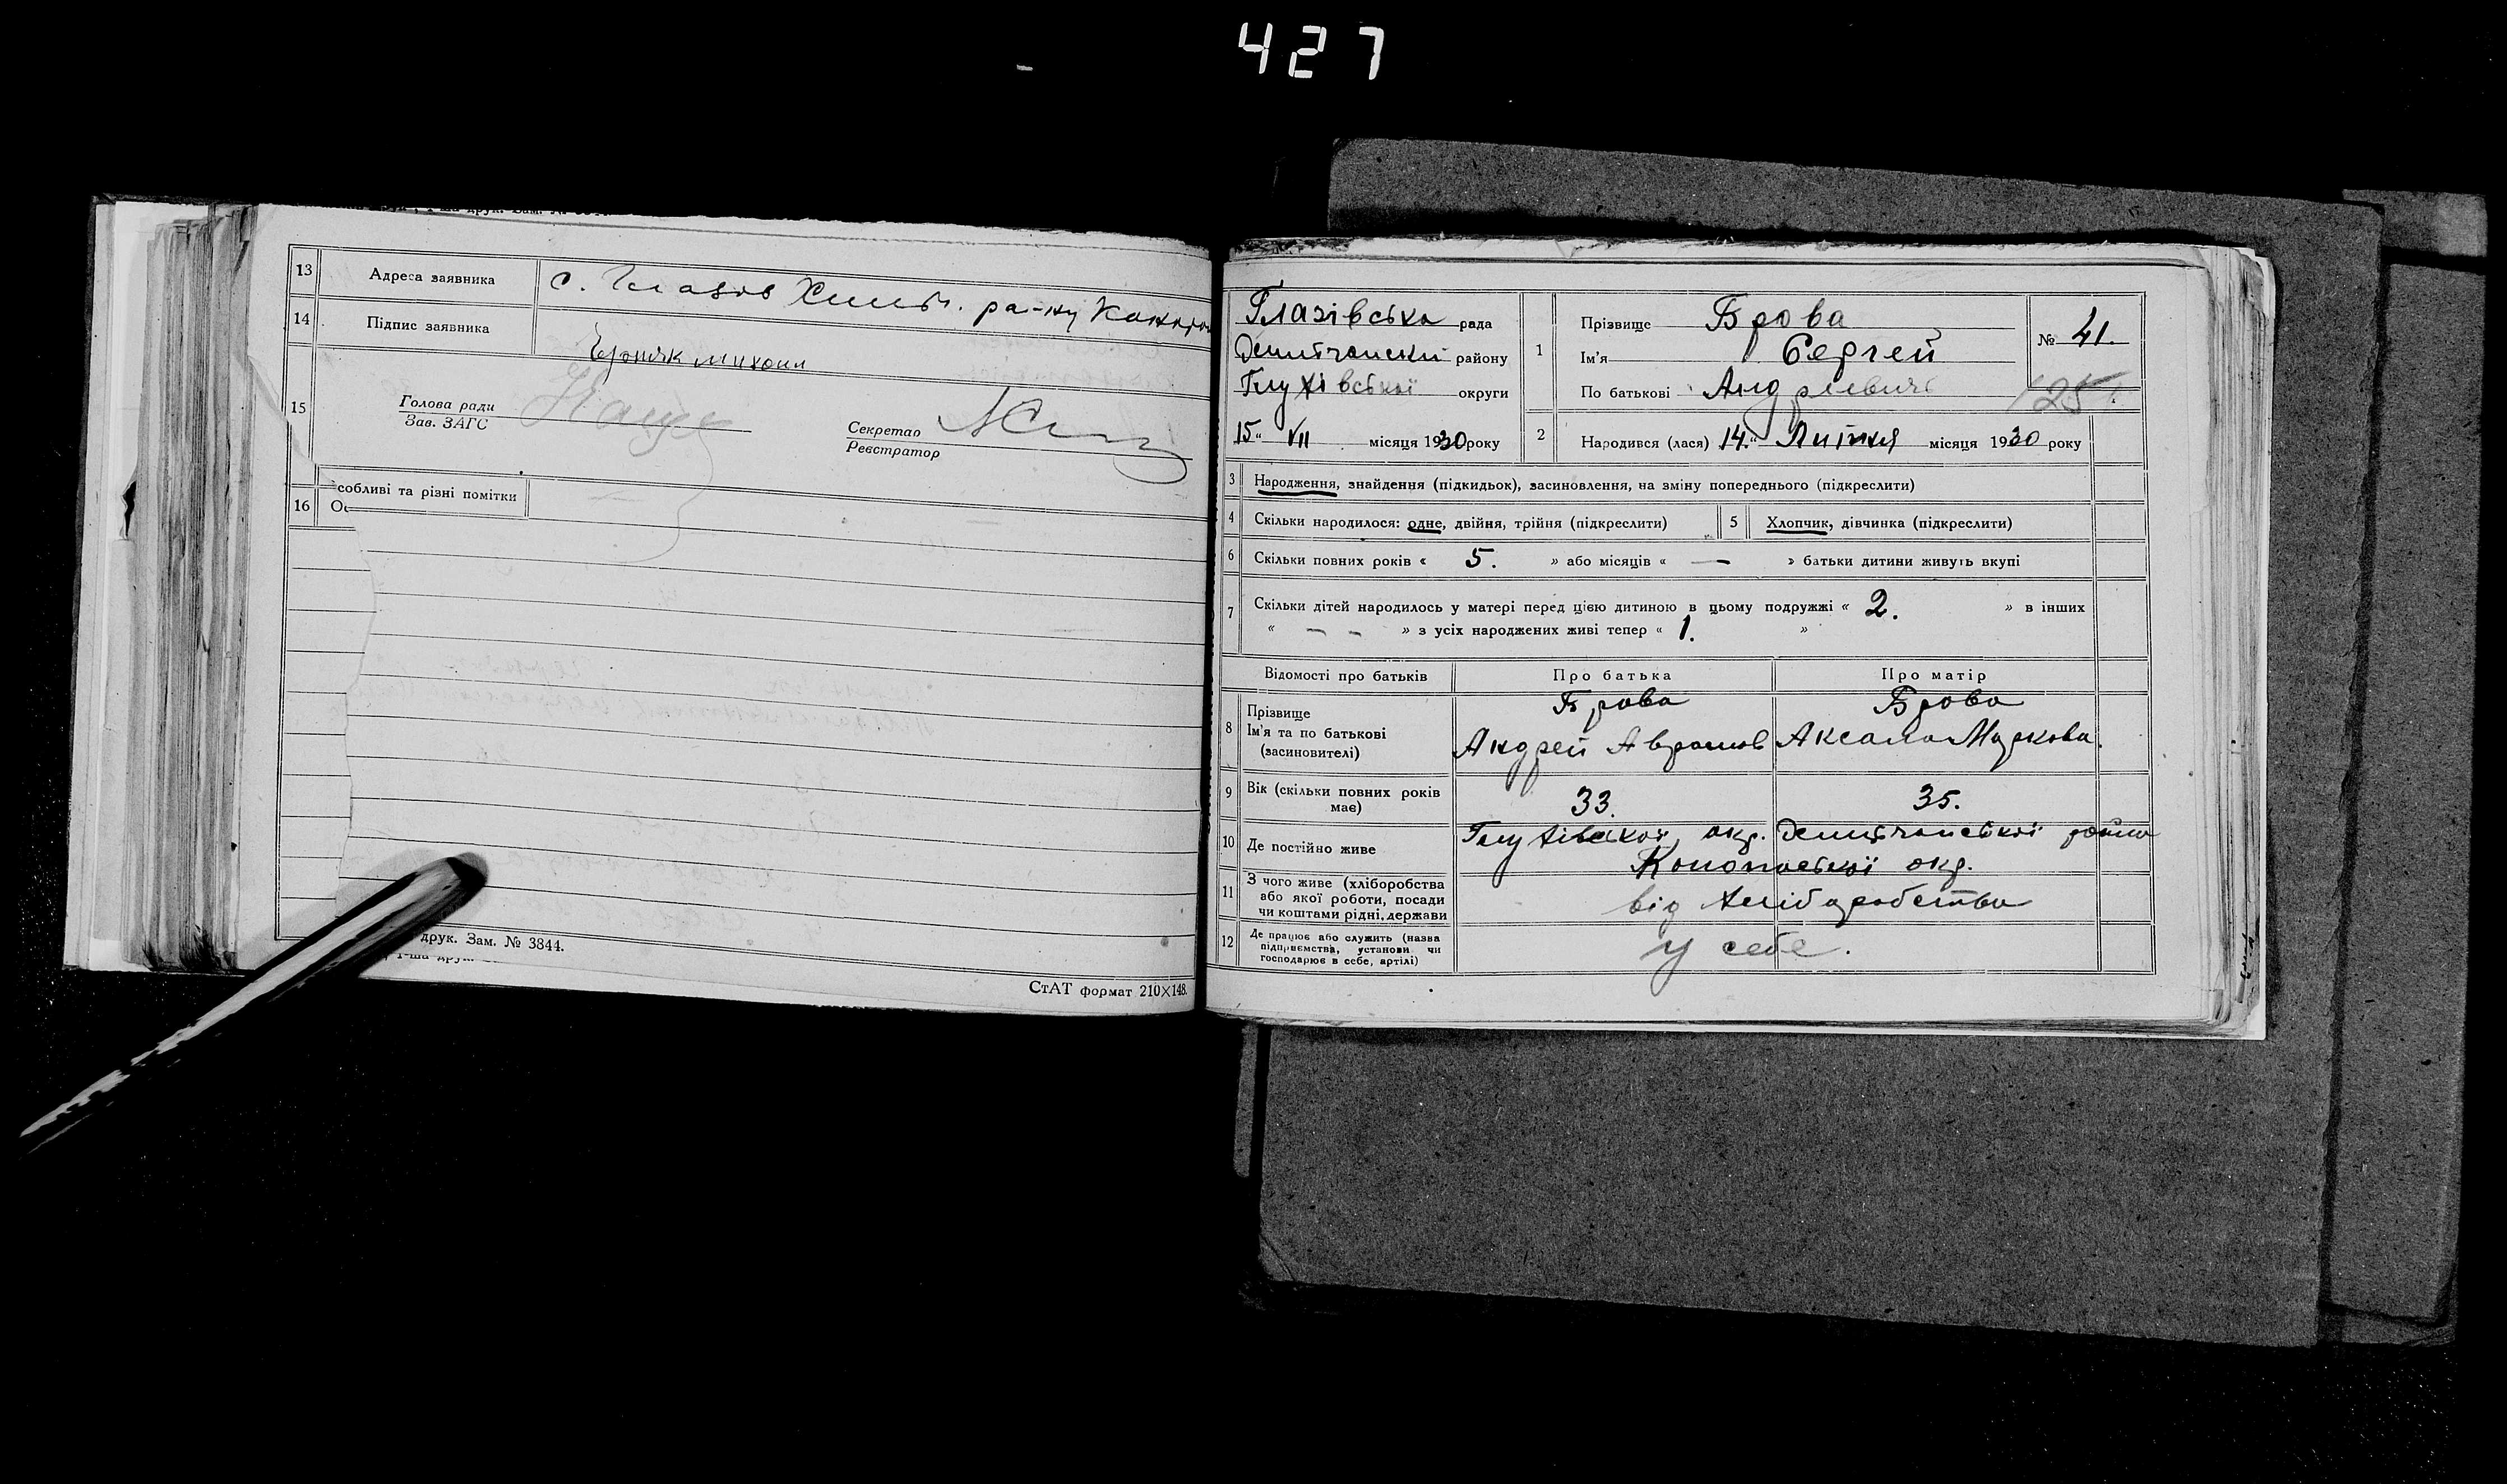 427
13 Адреса заявника с. Глазов Хильч. ра-ну Конотоп
14 Підпис заявника
Ерошек михоил
15 Голова ради
Зав. ЗАГС
Секретар
Реєстратор
16 Особливі та різні помітки
друк. Зам. № 3844.
СтАТ формат 210×148.
Глазівська рада
району
Глухівської округи
15 " VII місяця 1930 року
1 Прізвище Брова
Ім'я Сергей
По батькові Андреевич
№ 41.
125
2 Народився (лася) 14 " Липня місяця 1930 року
3 Народження, знайдення (підкидьок), засиновлення, на зміну попереднього (підкреслити)
4 Скільки народилося: одне, двійня, трійня (підкреслити) 5 Хлопчик, дівчинка (підкреслити)
6 Скільки повних років « 5. » або місяців « — » батьки дитини живуть вкупі
7 Скільки дітей народилось у матері перед цією дитиною в цьому подружжі « 2. » в інших
« — — » з усіх народжених живі тепер « 1. »
Відомості про батьків Про батька Про матір
8 Прізвище
Ім'я та по батькові
(засиновителі)
Брова Брова
Андрей Аврамов Аксана Маркова.
9 Вік (скільки повних років має) 33. 35.
10 Де постійно живе Глухівської, окр.
Конотопської окр.
11 З чого живе (хліборобства
або якої роботи, посади
чи коштами рідні, держави
від хліборобства
12 Де працює або служить (назва
підприємства, установи чи
господарює в себе, артілі)
у себе.